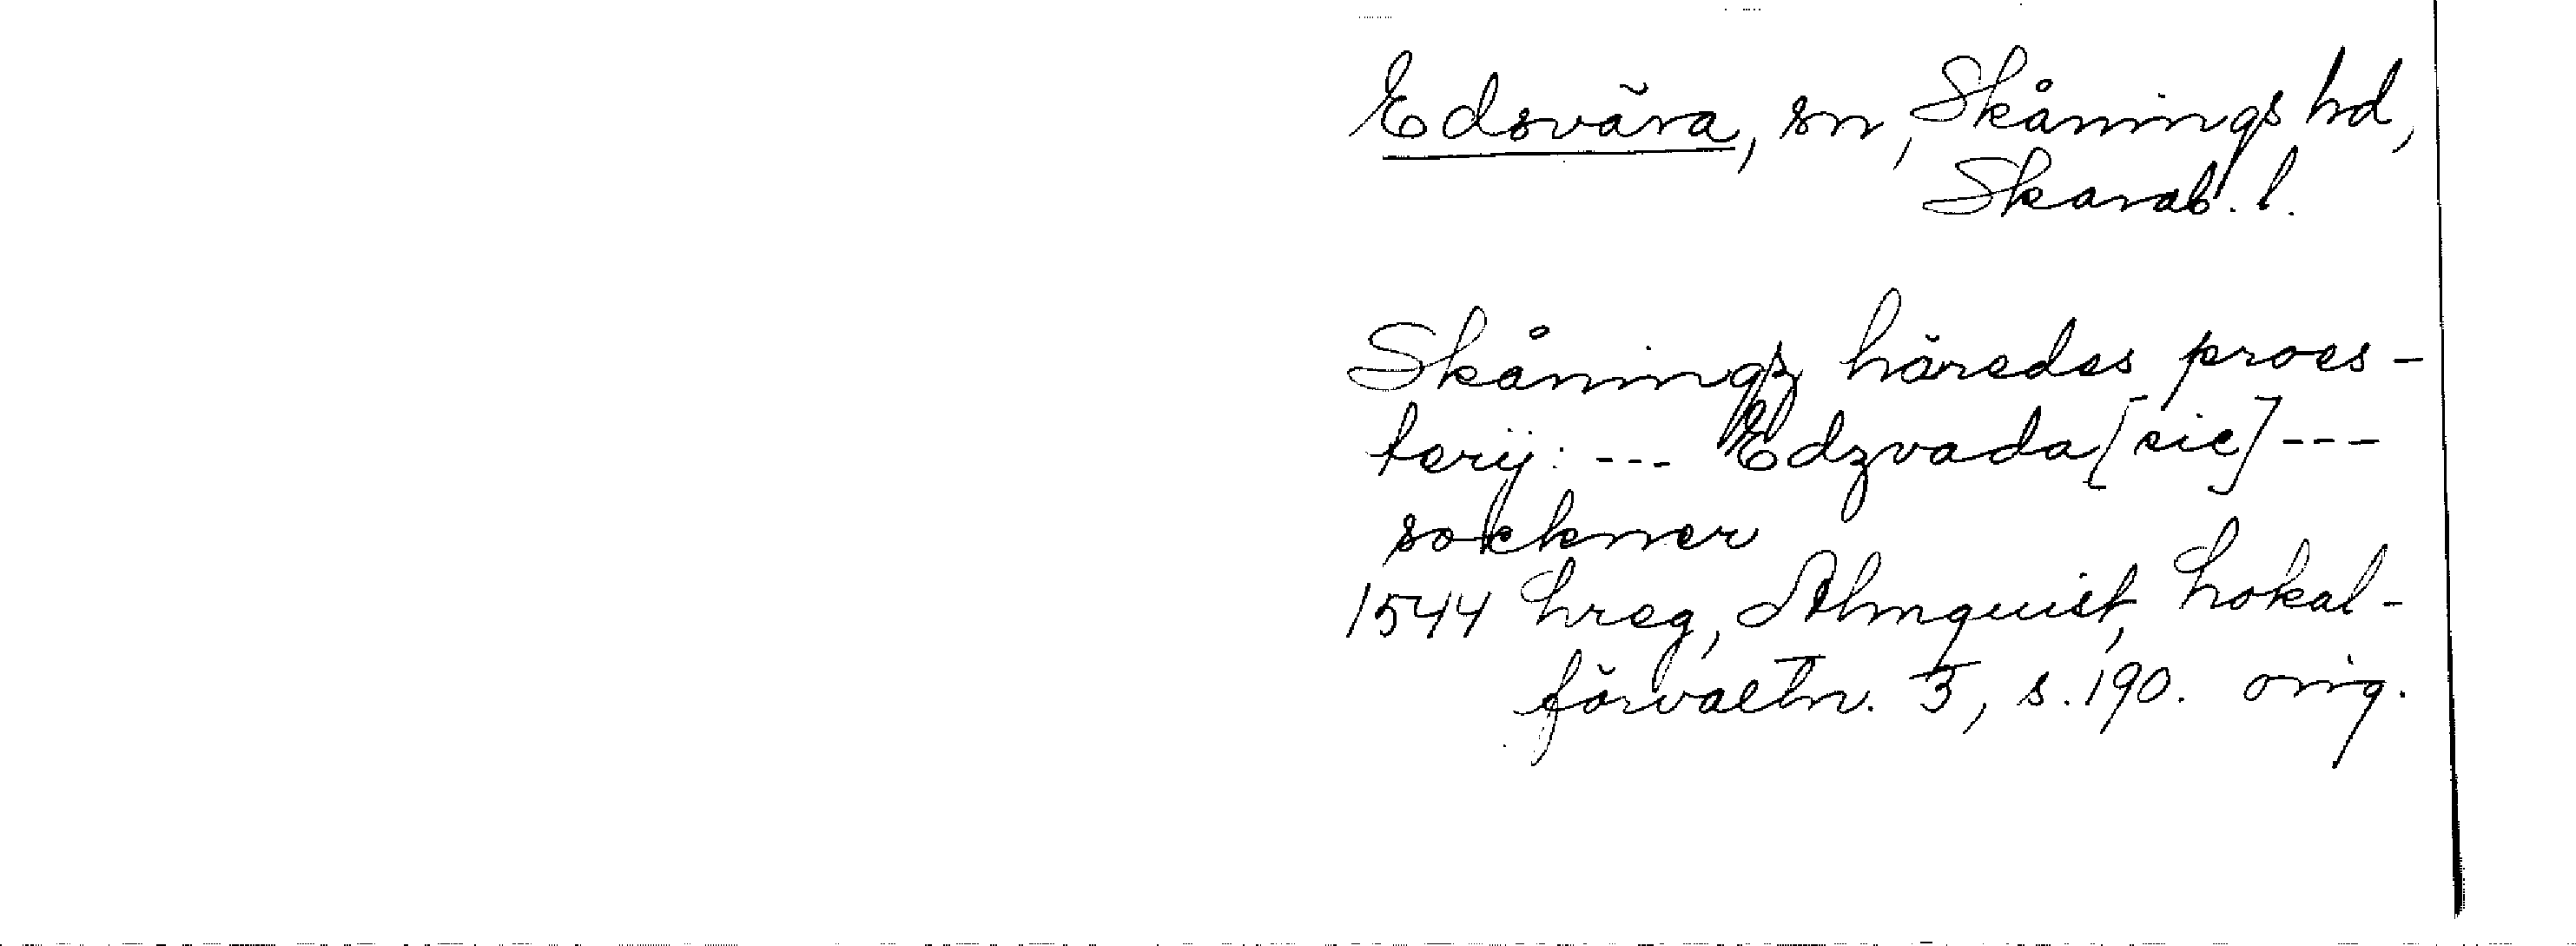 Edsvära, sn, Skånings hd,
Skarab. l.
Skåningz häredes proes-
terij: --- Edzvada [sic] ---
sockner
1544 hreg, Almquist, Lokal-
förvaltn. 3, s. 190. orig.